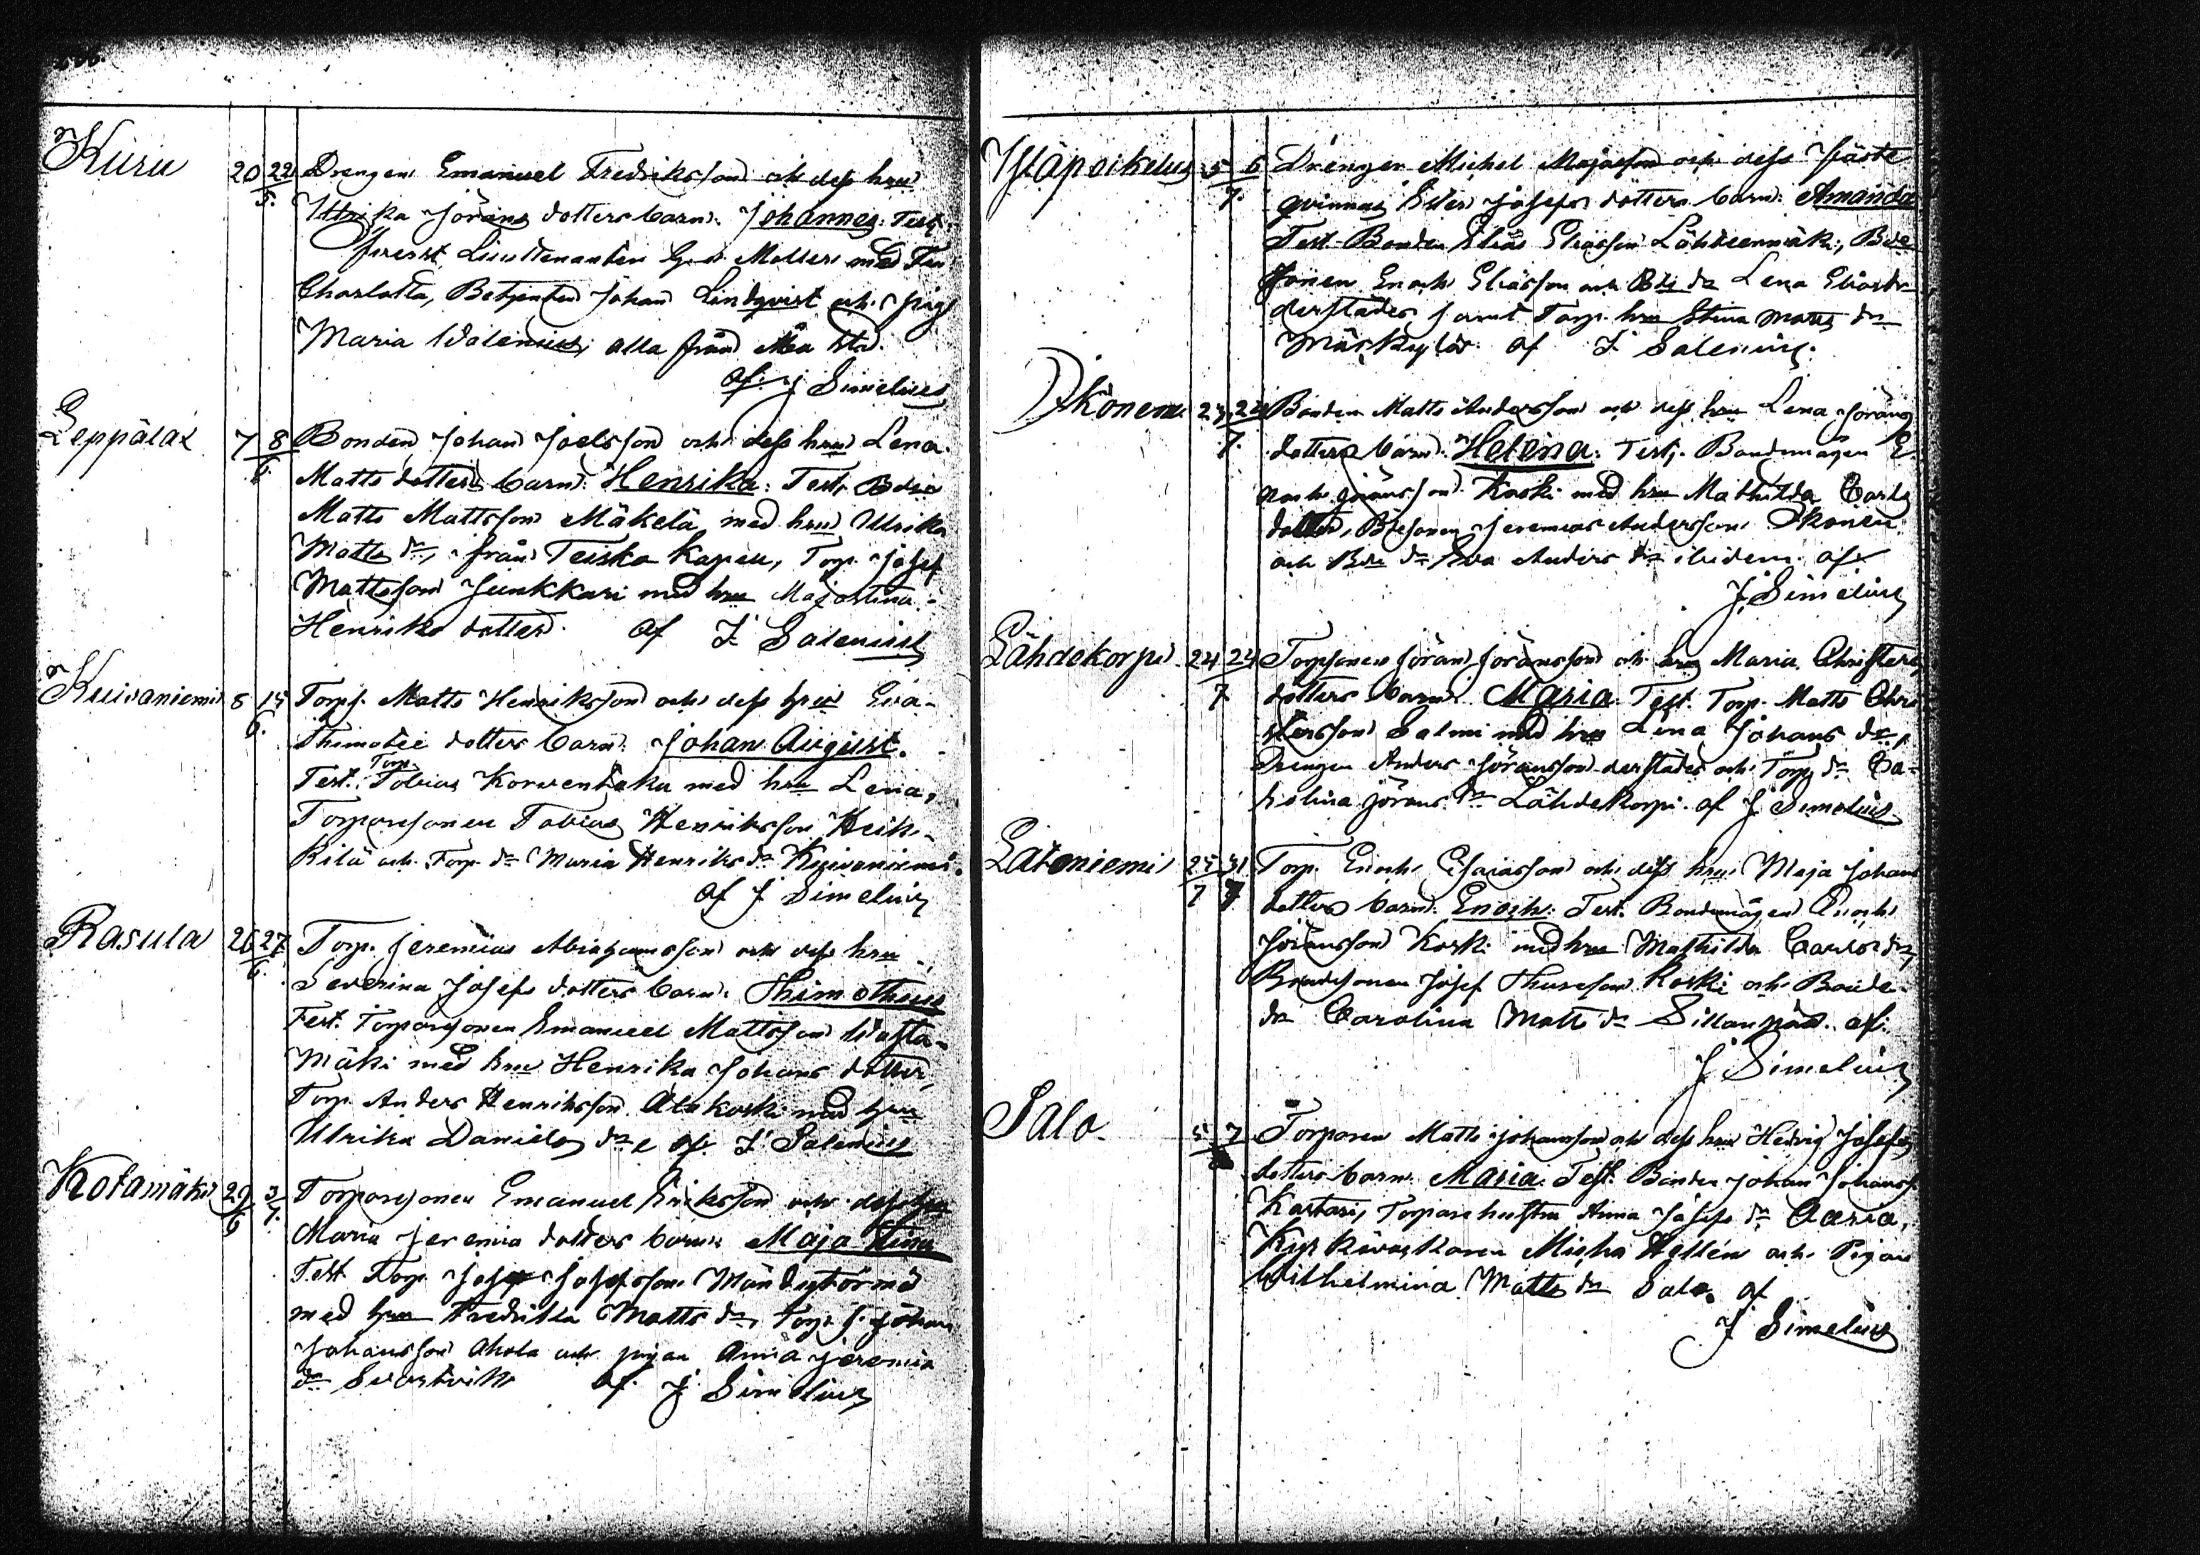 Kuru 20 22/5. Drengen Emanuel Fredriksson och dess hru
Ulrika Jörans dotters barn: Johannes. Test:
Charlotta, Betjenten Johan Lindqvist och Pig
Maria Walenius, alla från Åbo Std.
af. J Simelius
Leppälax 7 8/6. Bonden Johan Joelsson och dess hru Lena
Matts dotters barn: Henrika. Test: Bden
Matts Mattsson Mäkelä med hru Ulrika
Matts dr, från Teisko Kapell, Torp. Josef
Mattsson Junkkari med hru Maja Stina
Henriks dotter. af I. Salenius
Kuivaniemi 8 15/6. Torp. Matts Henriksson och dess hru Eva
Thimotei dotters barn: Johan August.
Test: Torp. Tobias Korventaka med hru Lena,
Torparesonen Tobias Henriksson Heik-
kilä och Torp. dr Maria Henriks dr Kuivaniemi.
af J Simelius
Rasula 26 27/6. Torp. Jeremias Abrahamsson och dess hru
Severina Josefs dotters barn: Thimotheus
Test. Torparesonen Emanuel Mattsson
mäki med hru Henrika Johans dotter,
Torp. Anders Henriksson Alakoski med hru
Ulrika Daniels dr af. I. Salenius
Kotamäki 29/6 3/7. Torparesonen Emanuel Eriksson och dess hru
Maria Jeremia dotters barn: Maja Stina
Test Torp. Josef Josefsson
med hru Fredrika Matts dr, Torp. s. Johan
Johansson Ahola och pigan Anna Jeremia
dr af. J Simelius
Yläpoikelus 5 6/7. Drengen Michel Majasson och dess fäste
qvinnas Josefs dotters barn: Amanda
Test. Bonden Elias Eliasson Lähteenmäki, Bde
sonen Enoch Eliasson och Bde dr Lena Elias dr
derstädes samt Torp. hru Stina Matts dr
af I. Salenius.
Ikonen 23 24/7. Bonden Matts Andersson och dess hru Lena Jörans
dotters barn: Helena. Test: Bondemågen E
noch Jöransson Koski med hru Mathilda Carls
dotter, Bdesonen Jeremias Andersson Ikonen
och Bde dr Eva Anders dr ibidem. af
J. Simelius
Lähdekorpi 24 24/7 Torpsonen Jöran Jöransson och hru Maria Christers
dotters barn: Maria. Test. Torp. Matts Chri
stersson Salmi med hru Lena Johans dr,
Drengen Anders Jöransson derstädes och Torp. dr Ca-
rolina Jörans dr Lähdekorpi. af J. Simelius
Latoniemi 25/7 31/7 Torp. Enoch Esaiasson och dess hru Maja Johans
dotters barn: Enoch. Test. Bondemågen Enoch
Jöransson Koski med hru Mathilda Carls dr,
Bondesonen Josef Thuresson Koski och Bonde
dr Carolina Matts dr Sillanpää. af.
J Simelius
Salo. 5 7 Torparen Matts Johansson och dess hru Hedvig Josefs
dotters barn: Maria. Test. Bonden Johan Johanss.
Kartari, Torpare hustru Anna Josefs dr
Kyrkiväktaren Micha Hellén och Pigan
Wilhelmina Matts dr Salo. af
J Simelius